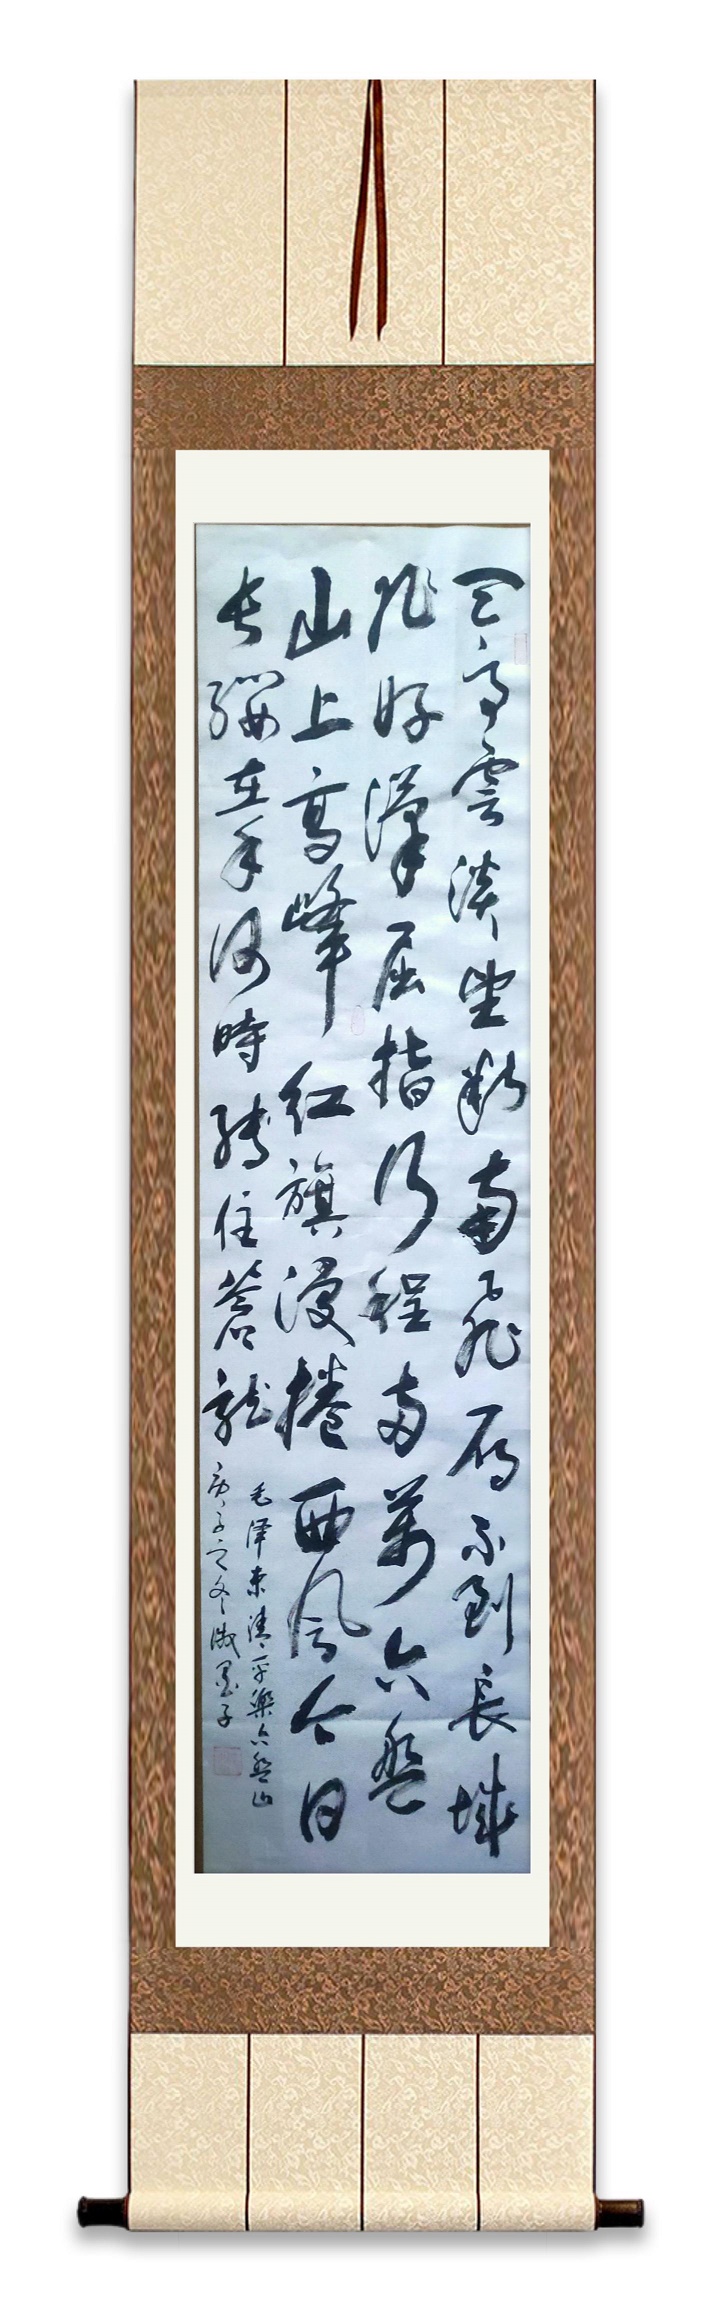 天高雲淡望断南飛雁不到長城
非好漢屈指行程兩萬六盤
山上高峰紅旗漫捲西風今日
長纓在手何時縛住蒼龍
毛澤東清平樂六盤山
庚子之冬墨子